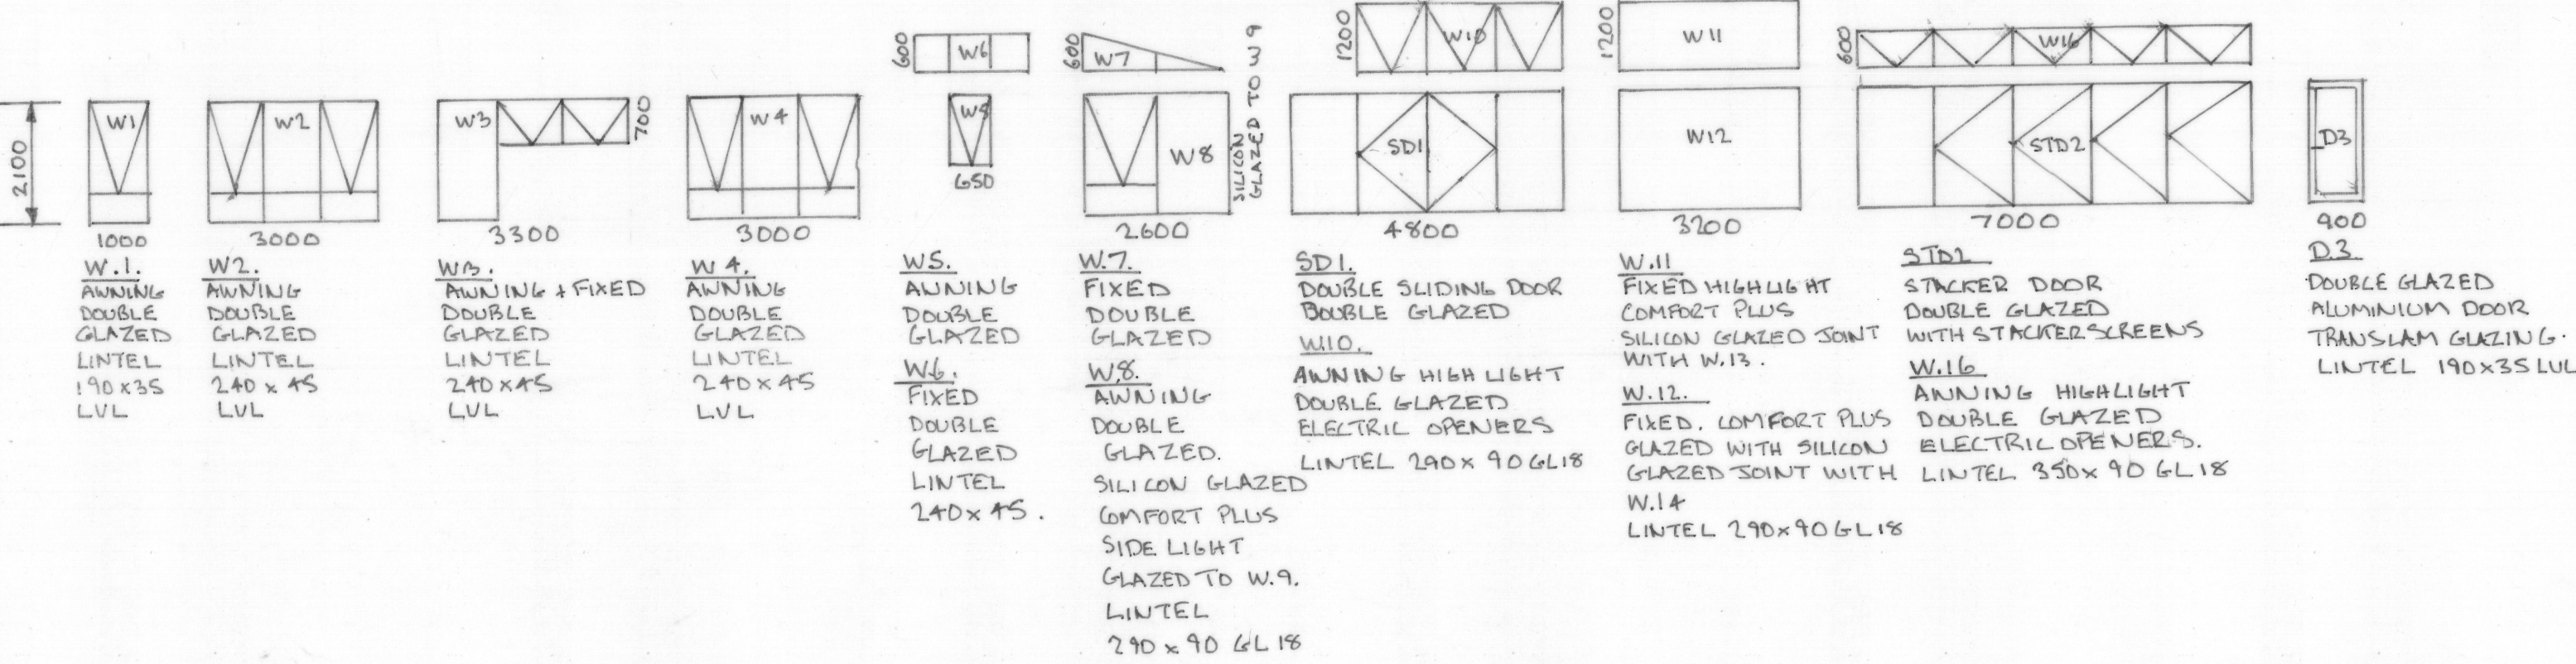 2100
W1
1000
W.1.
AWNING
DOUBLE
GLAZED
LINTEL
190x35
LVL
W2
3000
W2.
AWNING
DOUBLE
GLAZED
LINTEL
240 x 45
LVL
W3
700
3300
W3.
AWNING + FIXED
DOUBLE
GLAZED
LINTEL
240x45
LVL
W4
3000
W 4.
AWNING
DOUBLE
GLAZED
LINTEL
240x45
LVL
600
W6
W5
650
W5.
AWNING
DOUBLE
GLAZED
W.6.
FIXED
DOUBLE
GLAZED
LINTEL
240x45.
600
W7
W8
SILICON
GLAZED TO W9
2600
W.7.
FIXED
DOUBLE
GLAZED
W.8.
AWNING
DOUBLE
GLAZED.
SILICON GLAZED
COMFORT PLUS
SIDE LIGHT
GLAZED TO W.9.
LINTEL
290 x 90 GL18
1200
W10
SD1
4800
SD1.
DOUBLE SLIDING DOOR
DOUBLE GLAZED
W.10.
AWNING HIGHLIGHT
DOUBLE GLAZED
ELECTRIC OPENERS
LINTEL 290x 90 GL18
1200
W11
W12
3200
W.11
FIXED HIGHLIGHT
COMFORT PLUS
SILICON GLAZED JOINT
WITH W.13.
W.12.
FIXED. COMFORT PLUS
GLAZED WITH SILICON
GLAZED JOINT WITH
W.14
LINTEL 290x90 GL18
600
W16
STD2
7000
STD2
STACKER DOOR
DOUBLE GLAZED
WITH STACKER SCREENS
W.16
AWNING HIGHLIGHT
DOUBLE GLAZED
ELECTRIC OPENERS.
LINTEL 350x 90 GL18
D3
900
D.3
DOUBLE GLAZED
ALUMINIUM DOOR
TRANSLAM GLAZING.
LINTEL 190x35 LVL